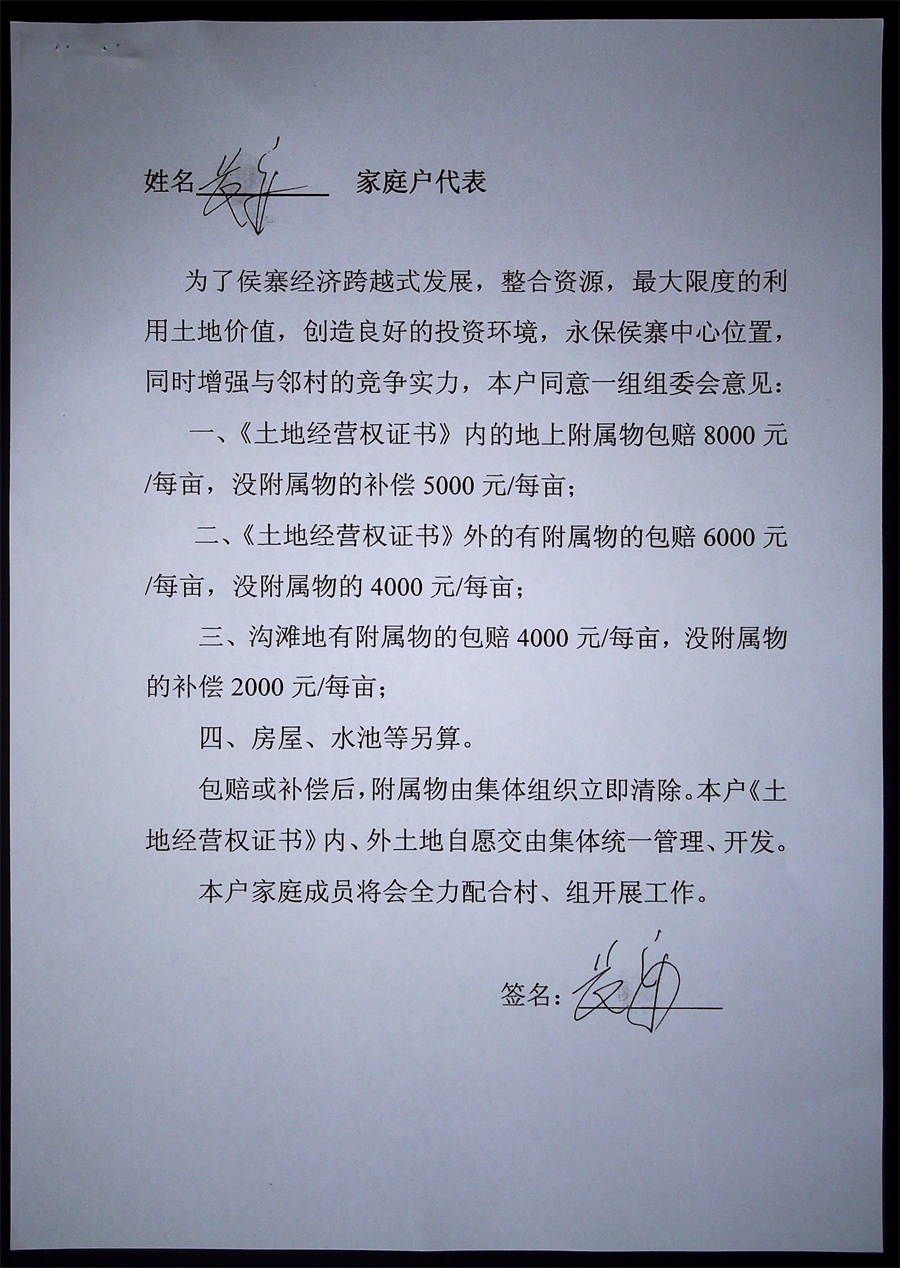 姓名 家庭户代表
为了侯寨经济跨越式发展，整合资源，最大限度的利
用土地价值，创造良好的投资环境，永保侯寨中心位置，
同时增强与邻村的竞争实力，本户同意一组组委会意见：
一、《土地经营权证书》内的地上附属物包赔 8000 元
/每亩，没附属物的补偿 5000 元/每亩；
二、《土地经营权证书》外的有附属物的包赔 6000 元
/每亩，没附属物的 4000 元/每亩；
三、沟滩地有附属物的包赔 4000 元/每亩，没附属物
的补偿 2000 元/每亩；
四、房屋、水池等另算。
包赔或补偿后，附属物由集体组织立即清除。本户《土
地经营权证书》内、外土地自愿交由集体统一管理、开发。
本户家庭成员将会全力配合村、组开展工作。
签名：